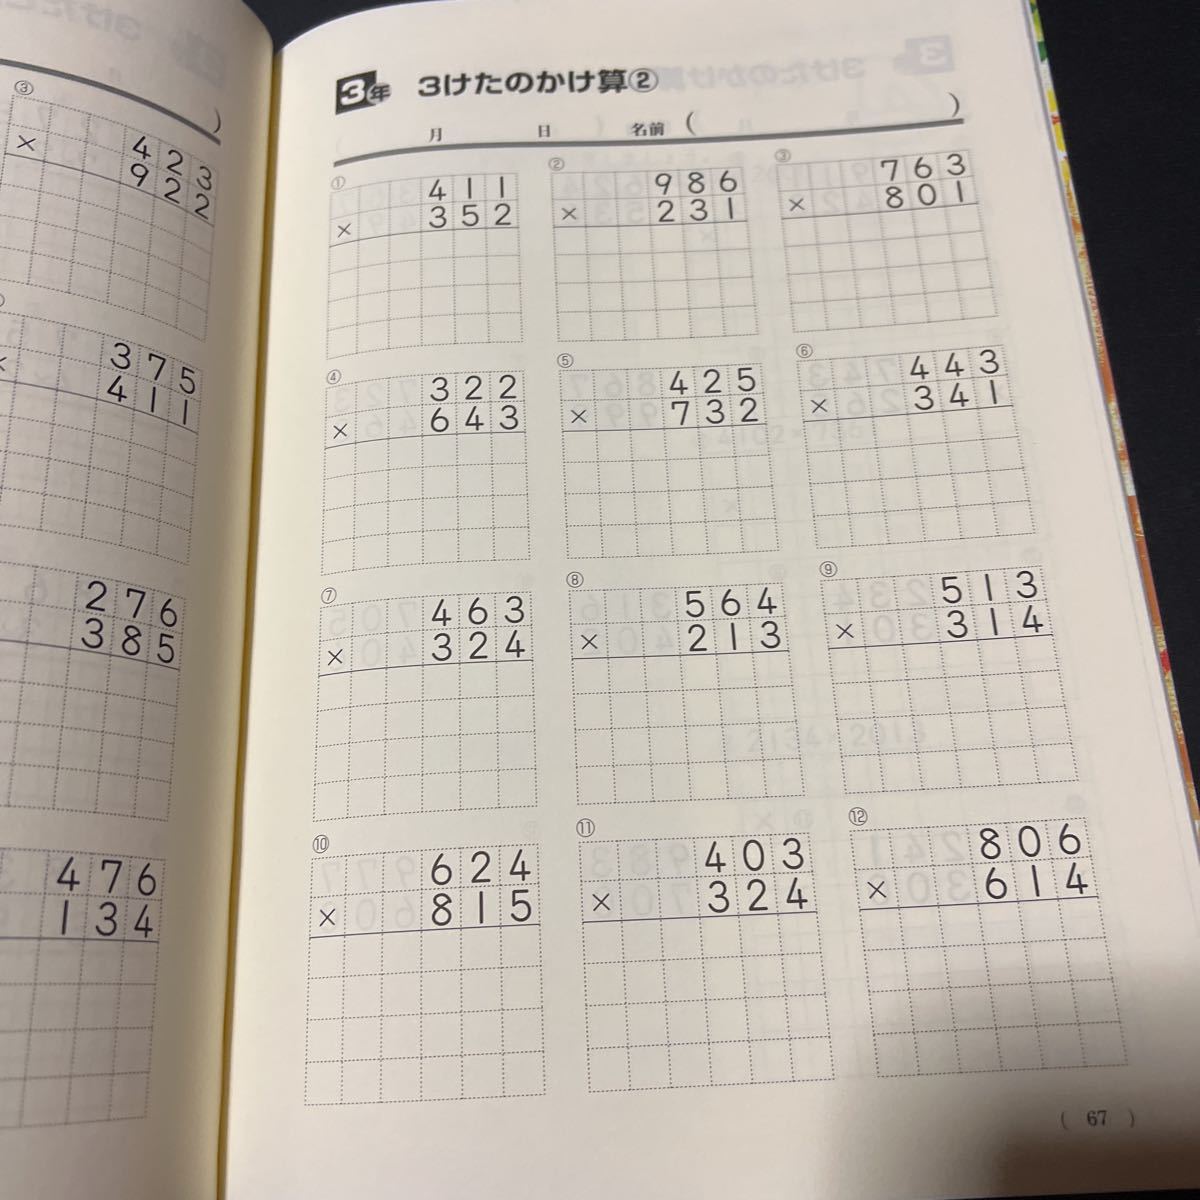 ③
423
× 922
375
× 411
276
385
476
134
3年 3けたのかけ算②
月 日 名前 ( )
① ② ③
411 986 763
× 352 × 231 × 801
④ ⑤ ⑥
322 425 443
× 643 × 732 × 341
⑦ ⑧ ⑨
463 564 513
× 324 × 213 × 314
⑩ ⑪ ⑫
624 403 806
× 815 × 324 × 614
( 67 )